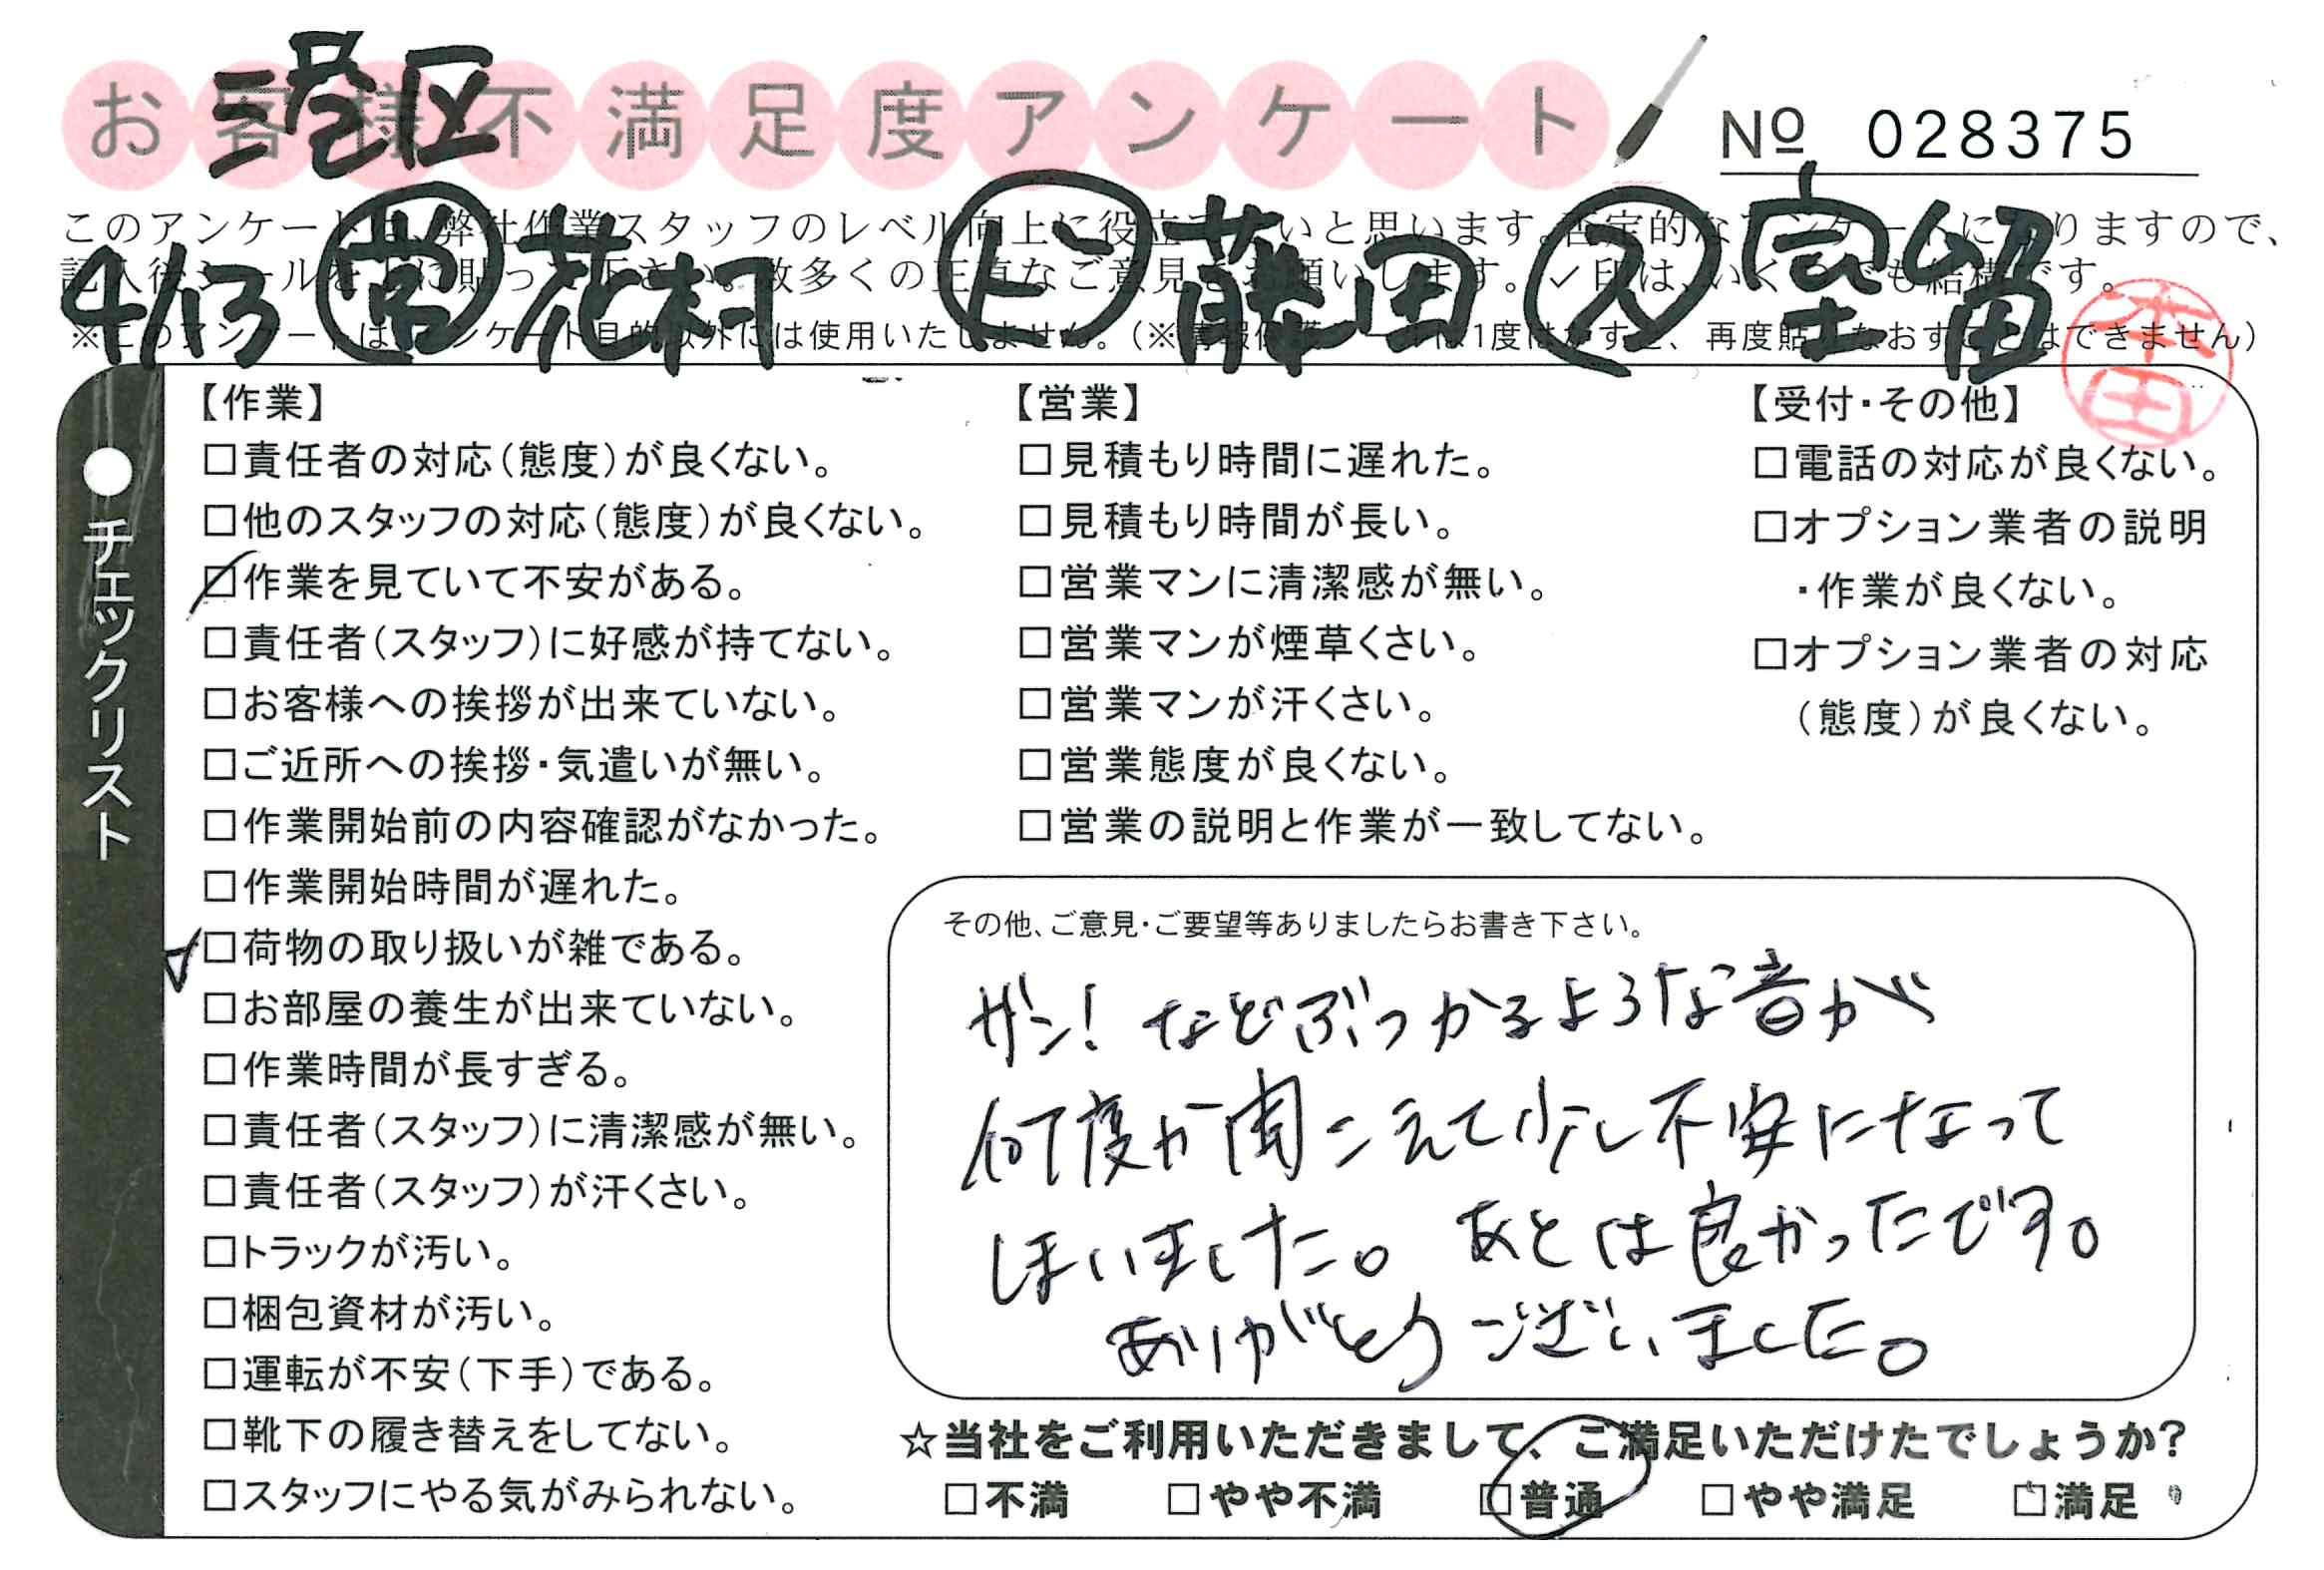 港区
お客様不満足度アンケート
№ 028375
このアンケートは、弊社作業スタッフのレベル向上に役立てたいと思います。否定的なアンケートになりますので、
記入後シールを上に貼って下さい。数多くの正直なご意見をお願いします。✓印は、いくつでも結構です。
※このアンケートはアンケート目的以外には使用いたしません。(※情報保護シールは1度はがすと、再度貼りなおすことはできません)
4/13 営 花村 ド 藤田 ス 室留
本田
●チェックリスト
【作業】
□責任者の対応(態度)が良くない。
□他のスタッフの対応(態度)が良くない。
□作業を見ていて不安がある。
□責任者(スタッフ)に好感が持てない。
□お客様への挨拶が出来ていない。
□ご近所への挨拶・気遣いが無い。
□作業開始前の内容確認がなかった。
□作業開始時間が遅れた。
□荷物の取り扱いが雑である。
□お部屋の養生が出来ていない。
□作業時間が長すぎる。
□責任者(スタッフ)に清潔感が無い。
□責任者(スタッフ)が汗くさい。
□トラックが汚い。
□梱包資材が汚い。
□運転が不安(下手)である。
□靴下の履き替えをしてない。
□スタッフにやる気がみられない。
【営業】
□見積もり時間に遅れた。
□見積もり時間が長い。
□営業マンに清潔感が無い。
□営業マンが煙草くさい。
□営業マンが汗くさい。
□営業態度が良くない。
□営業の説明と作業が一致してない。
【受付・その他】
□電話の対応が良くない。
□オプション業者の説明
・作業が良くない。
□オプション業者の対応
(態度)が良くない。
その他、ご意見・ご要望等ありましたらお書き下さい。
ガン! などぶつかるような音が
何度か聞こえて少し不安になって
しまいました。 あとは良かったです。
ありがとうございました。
☆当社をご利用いただきまして、ご満足いただけたでしょうか?
□不満 □やや不満 □普通 □やや満足 □満足